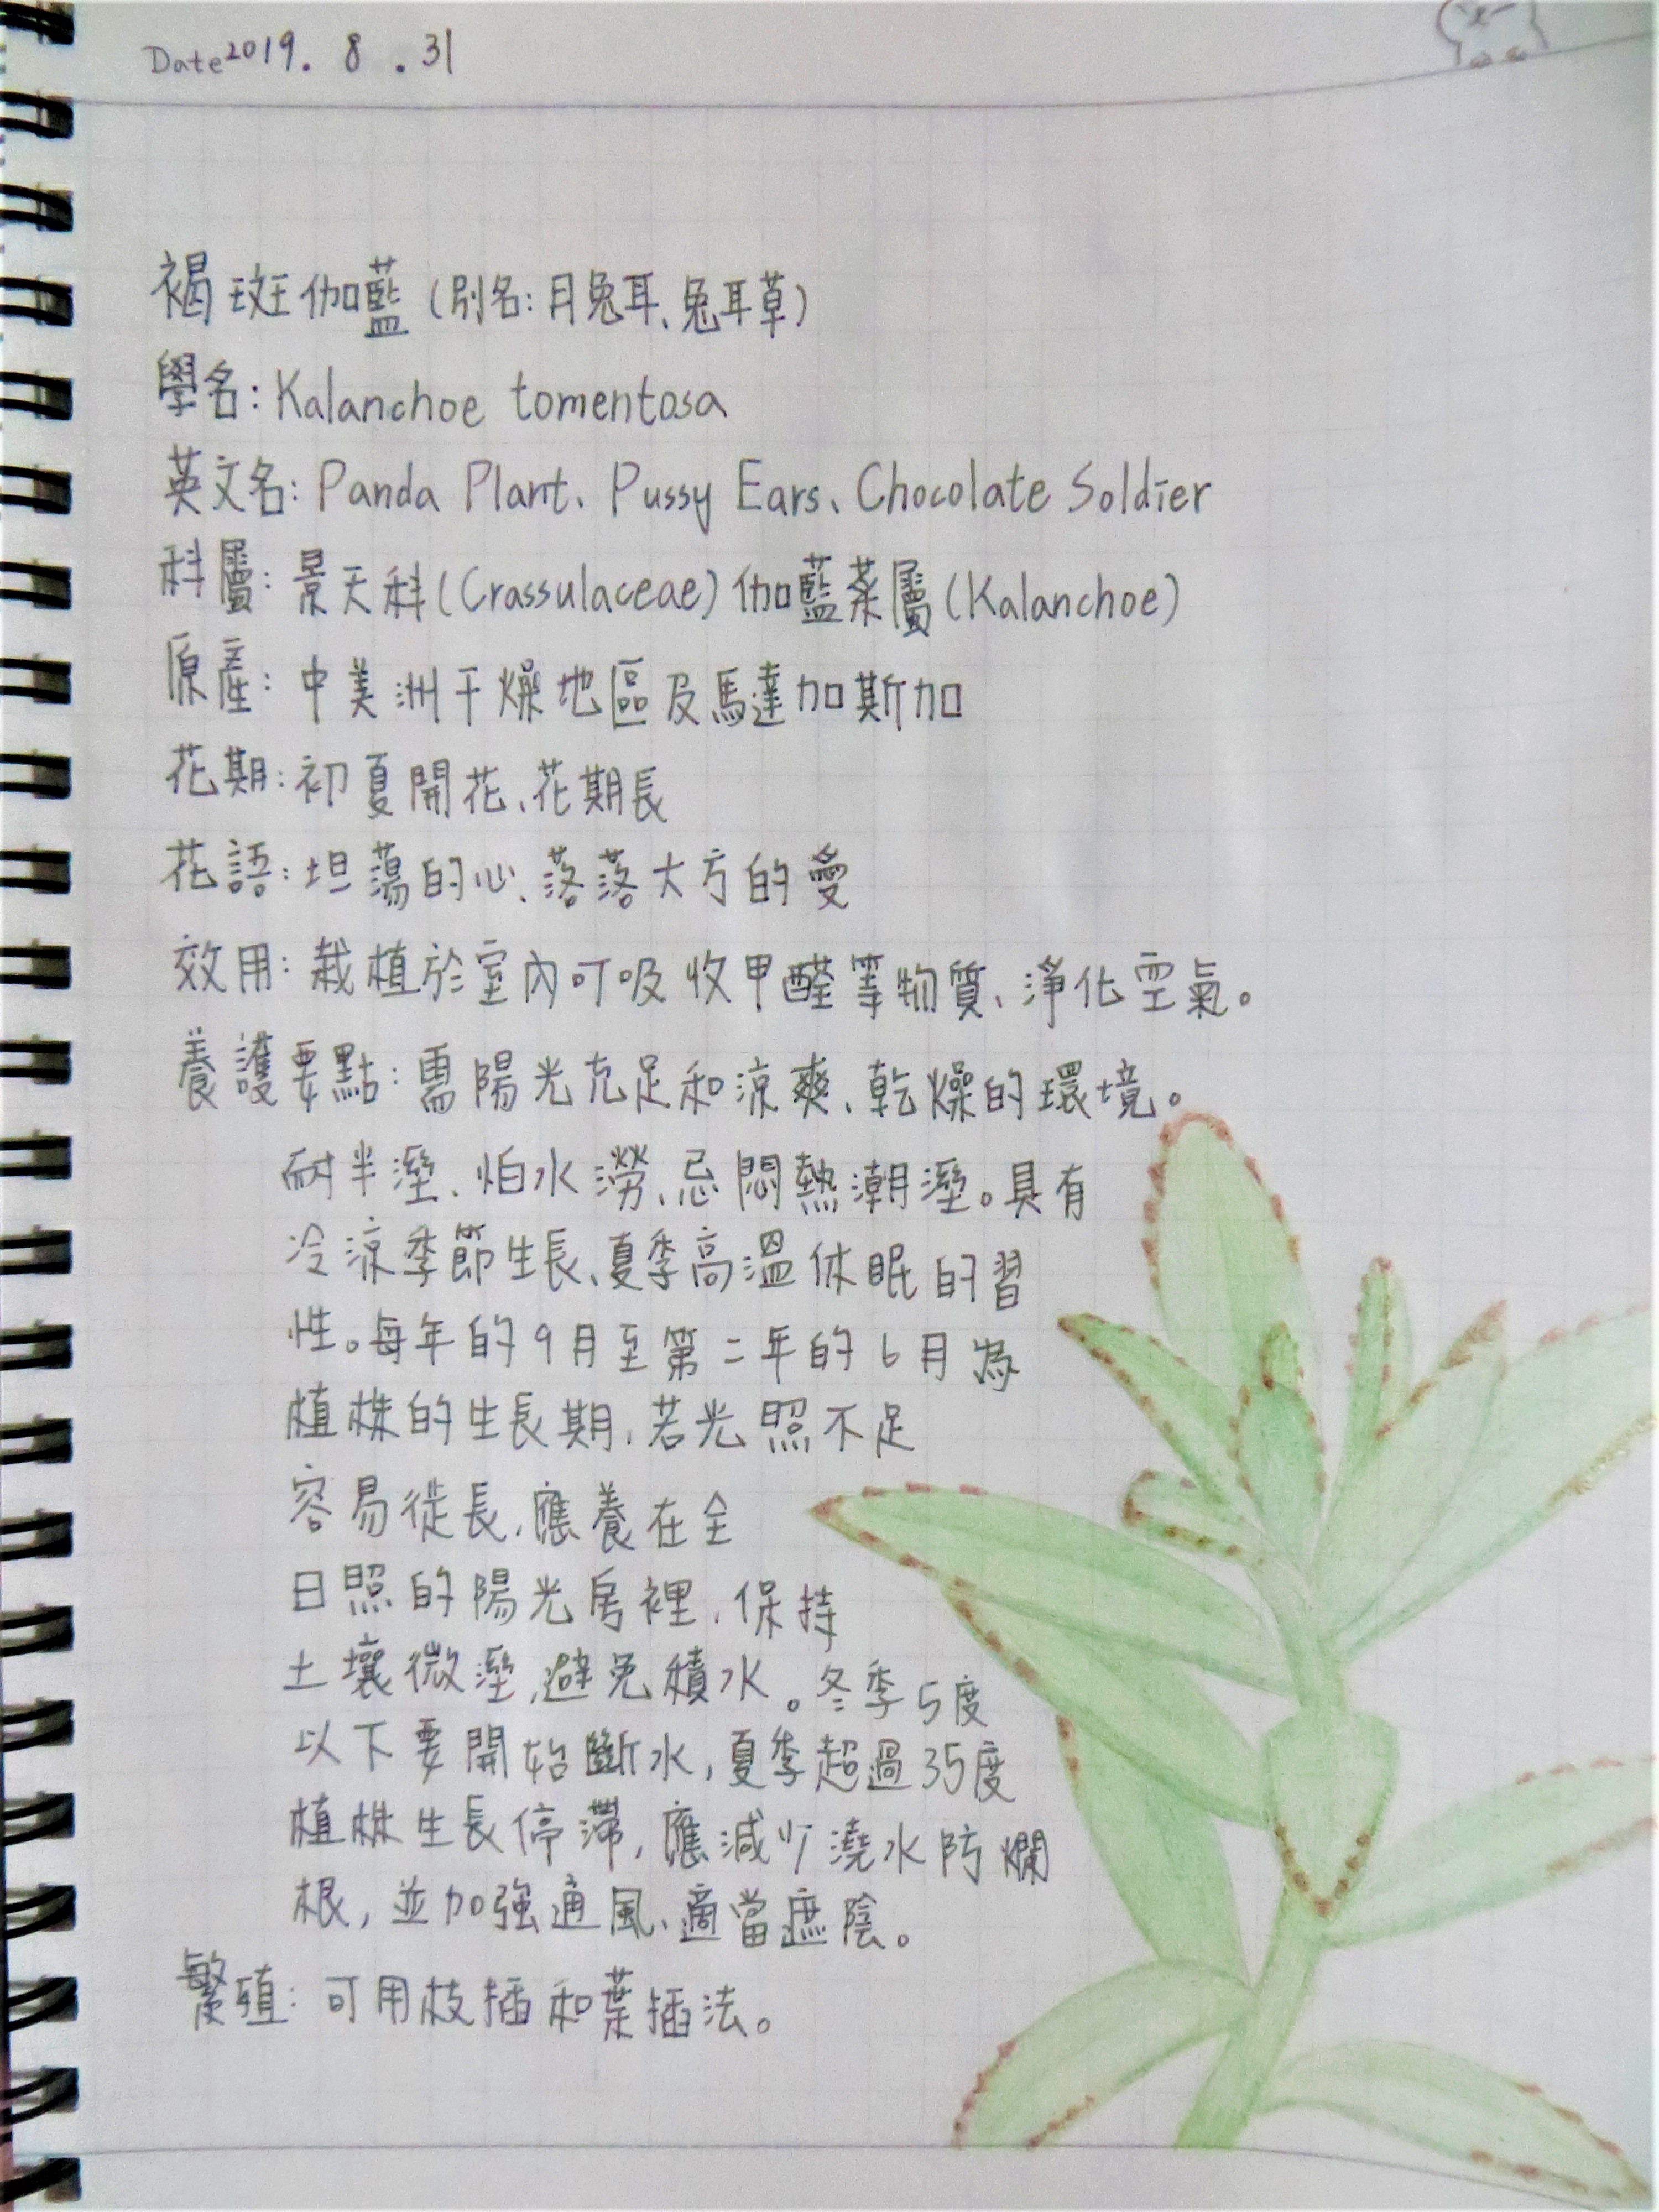 Date 2019. 8 .31
褐斑伽藍(別名:月兔耳、兔耳草)
學名:Kalanchoe tomentosa
英文名:Panda Plant、Pussy Ears、Chocolate Soldier
科屬:景天科(Crassulaceae)伽藍菜屬(Kalanchoe)
原產:中美洲干燥地區及馬達加斯加
花期:初夏開花、花期長
花語:坦蕩的心、落落大方的愛
效用:栽植於室內可吸收甲醛等物質、淨化空氣。
養護要點:需陽光充足和涼爽、乾燥的環境。
耐半溼、怕水澇、忌悶熱潮溼。具有
冷涼季節生長、夏季高溫休眠的習
性。每年的9月至第二年的6月為
植株的生長期,若光照不足
容易徒長,應養在全
日照的陽光房裡,保持
土壤微溼,避免積水。冬季5度
以下要開始斷水,夏季超過35度
植株生長停滯,應減少澆水防爛
根,並加強通風、適當遮陰。
繁殖:可用枝插和葉插法。